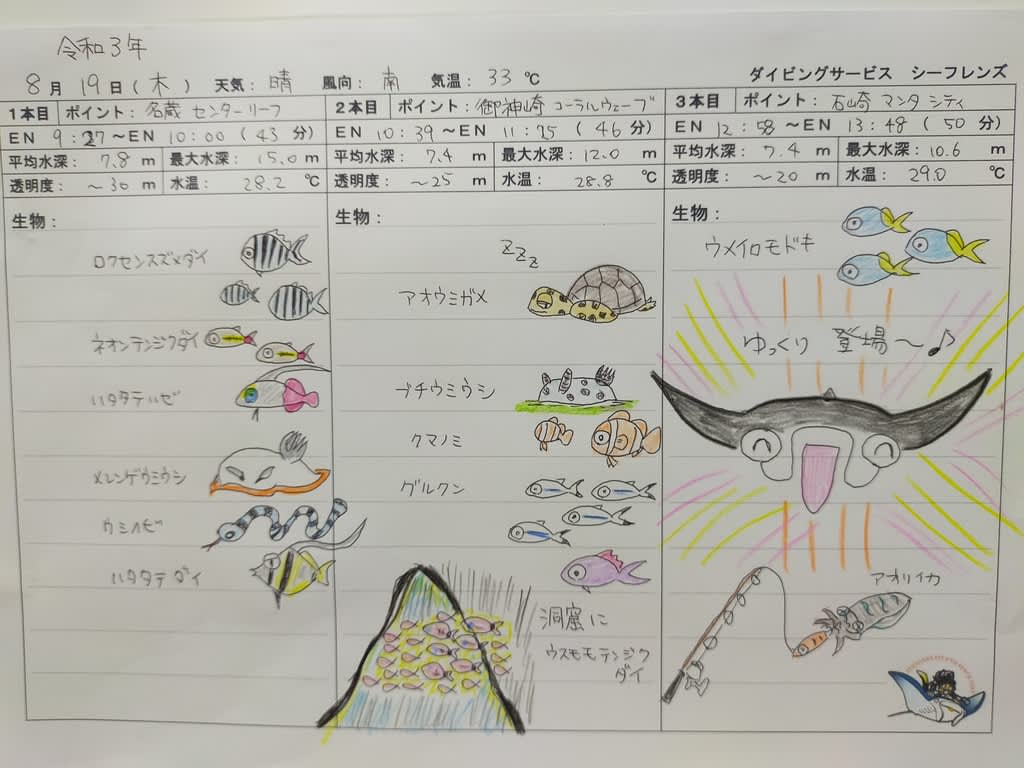 令和3年
8月 19日(木) 天気: 晴 風向: 南 気温: 33℃ ダイビングサービス シーフレンズ
1本目 ポイント: 名蔵 センターリーフ
EN 9:27～EN 10:00 (43 分)
平均水深: 7.8 m 最大水深: 15.0 m
透明度: ～30 m 水温: 28.2 ℃
生物:
ロクセンスズメダイ
ネオンテンジクダイ
ハタタテハゼ
メレンゲウミウシ
ウミヘビ
ハタタテダイ
2本目 ポイント: 御神崎 コーラルウェーブ
EN 10:39～EN 11:25 (46 分)
平均水深: 7.4 m 最大水深: 12.0 m
透明度: ～25 m 水温: 28.8 ℃
生物:
ZZZ
アオウミガメ
ブチウミウシ
クマノミ
グルクン
洞窟に
ウスモモテンジク
ダイ
3本目 ポイント: 石崎 マンタ シティ
EN 12:58～EN 13:48 (50 分)
平均水深: 7.4 m 最大水深: 10.6 m
透明度: ～20 m 水温: 29.0 ℃
生物:
ウメイロモドキ
ゆっくり 登場～♪
アオリイカ